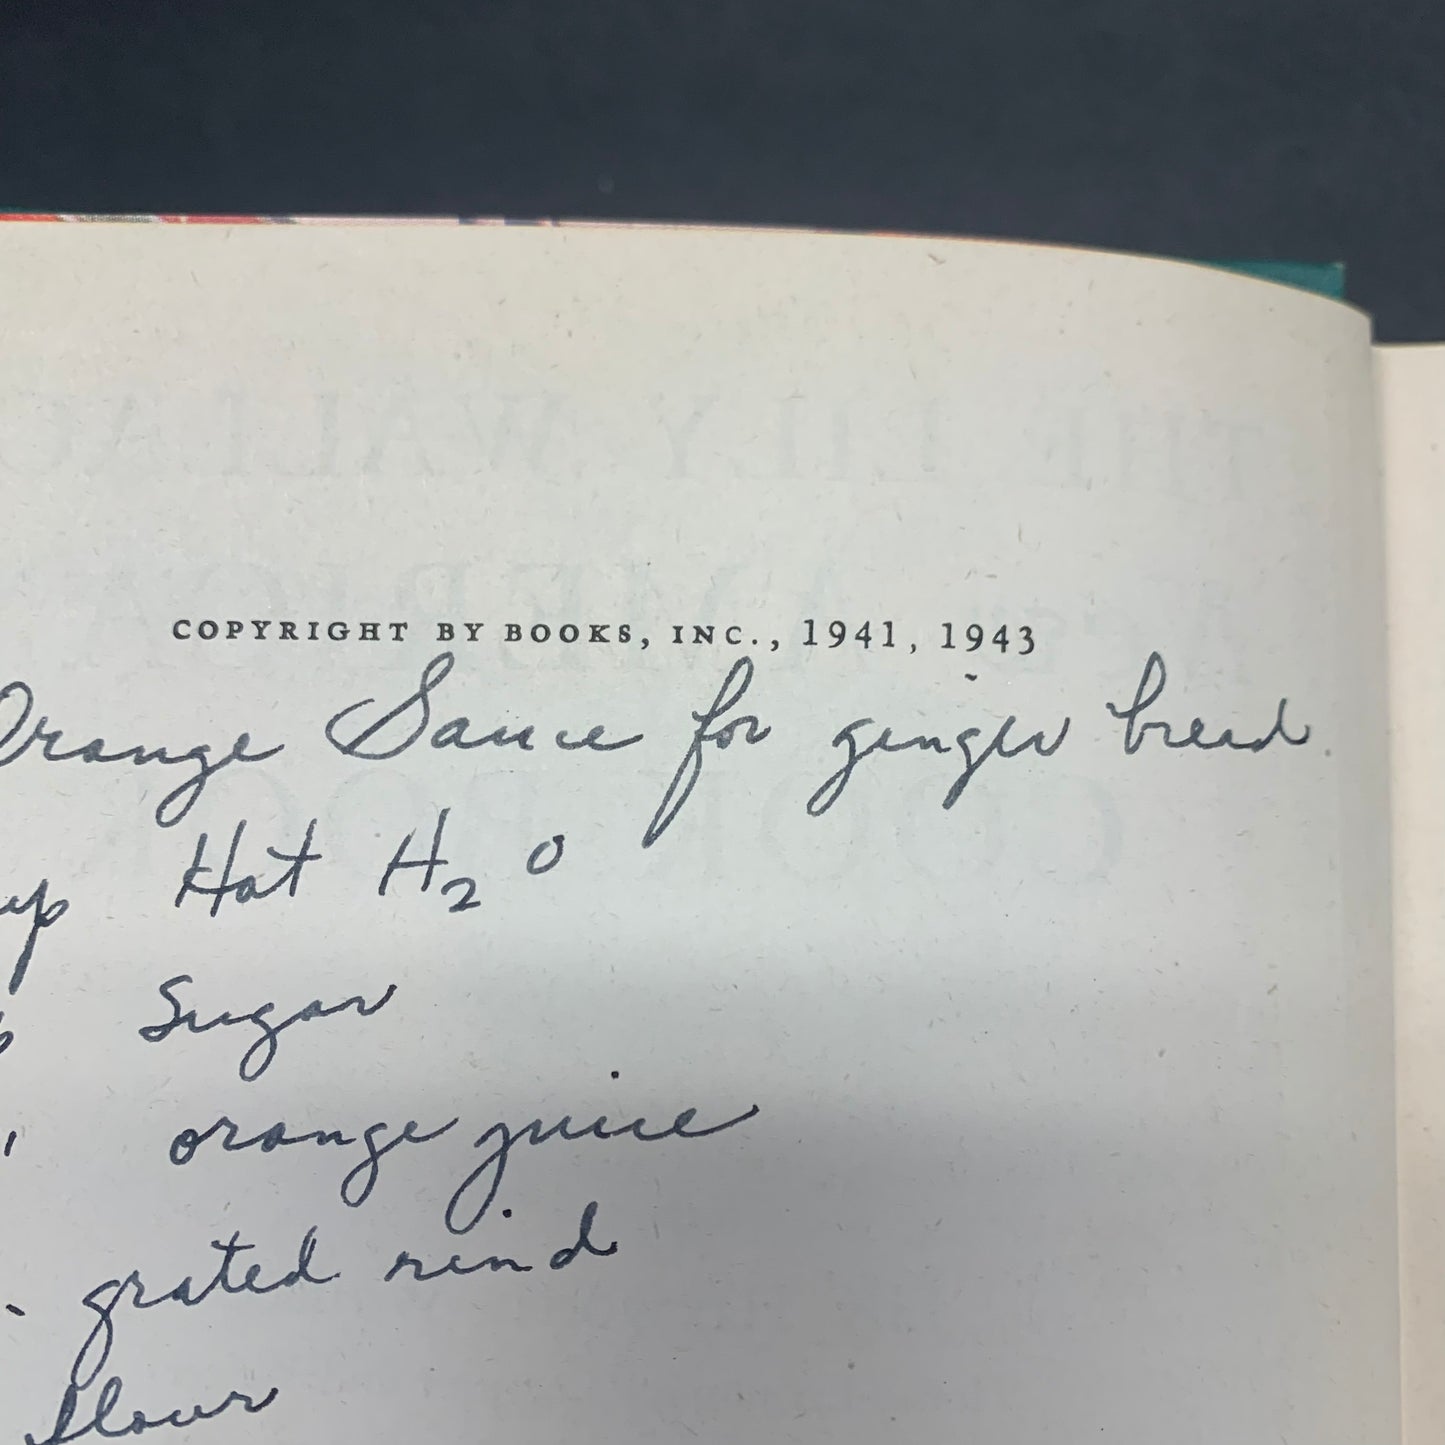 COPYRIGHT BY BOOKS, INC., 1941, 1943
Orange Sauce for ginger bread
Hot H2O
Sugar
orange juice
grated rind
flour